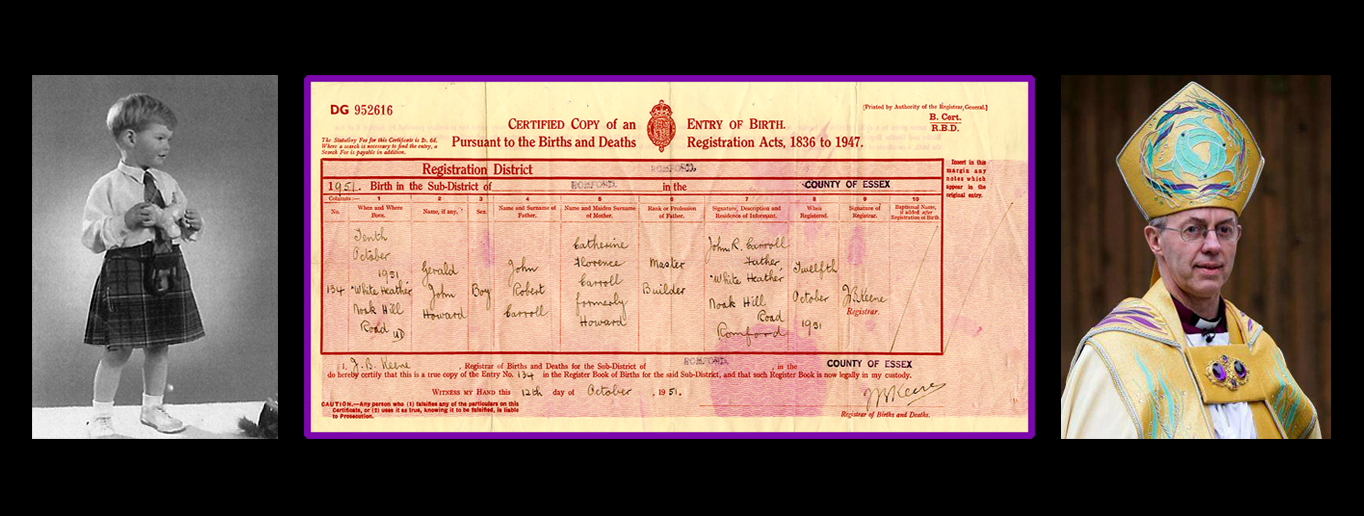 DG 952616
[Printed by Authority of the Registrar General.]
B. Cert.
R.B.D.
CERTIFIED COPY of an ENTRY OF BIRTH.
The Statutory Fee for this Certificate is 2s. 6d.
Where a search is necessary to find the entry, a
Search Fee is payable in addition.
Pursuant to the Births and Deaths Registration Acts, 1836 to 1947.
Registration District ROMFORD.
Insert in this
margin any
notes which
appear in the
original entry.
1951. Birth in the Sub-District of ROMFORD. in the COUNTY OF ESSEX
Columns:— 1 2 3 4 5 6 7 8 9 10
No.
When and Where
Born.
Name, if any.
Sex.
Name and Surname of
Father.
Name and Maiden Surname
of Mother.
Rank or Profession
of Father.
Signature, Description and
Residence of Informant.
When
Registered.
Signature of
Registrar.
Baptismal Name,
if added after
Registration of Birth.
134
Tenth
October
1951
"White Heather"
Noak Hill
Road UD
Gerald
John
Howard
Boy
John
Robert
Carroll
Catherine
Florence
Carroll
formerly
Howard
Master
Builder
John R. Carroll
Father
"White Heather"
Noak Hill
Road
Romford
Twelfth
October
1951
J B Keene
Registrar.
I, J. B. Keene, Registrar of Births and Deaths for the Sub-District of ROMFORD. , in the COUNTY OF ESSEX
do hereby certify that this is a true copy of the Entry No. 134 in the Register Book of Births for the said Sub-District, and that such Register Book is now legally in my custody.
WITNESS MY HAND this 12th day of October , 1951.
CAUTION.—Any person who (1) falsifies any of the particulars on this
Certificate, or (2) uses it as true, knowing it to be falsified, is liable
to Prosecution.
J B Keene
Registrar of Births and Deaths.